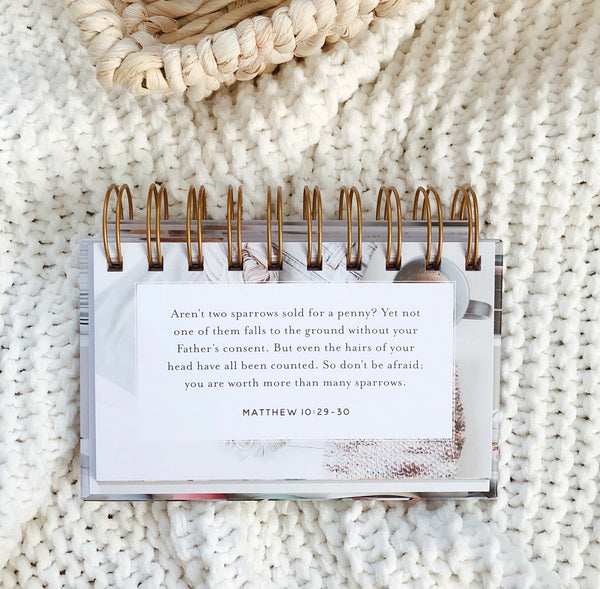 Aren't two sparrows sold for a penny? Yet not
one of them falls to the ground without your
Father's consent. But even the hairs of your
head have all been counted. So don't be afraid;
you are worth more than many sparrows.
MATTHEW 10:29-30